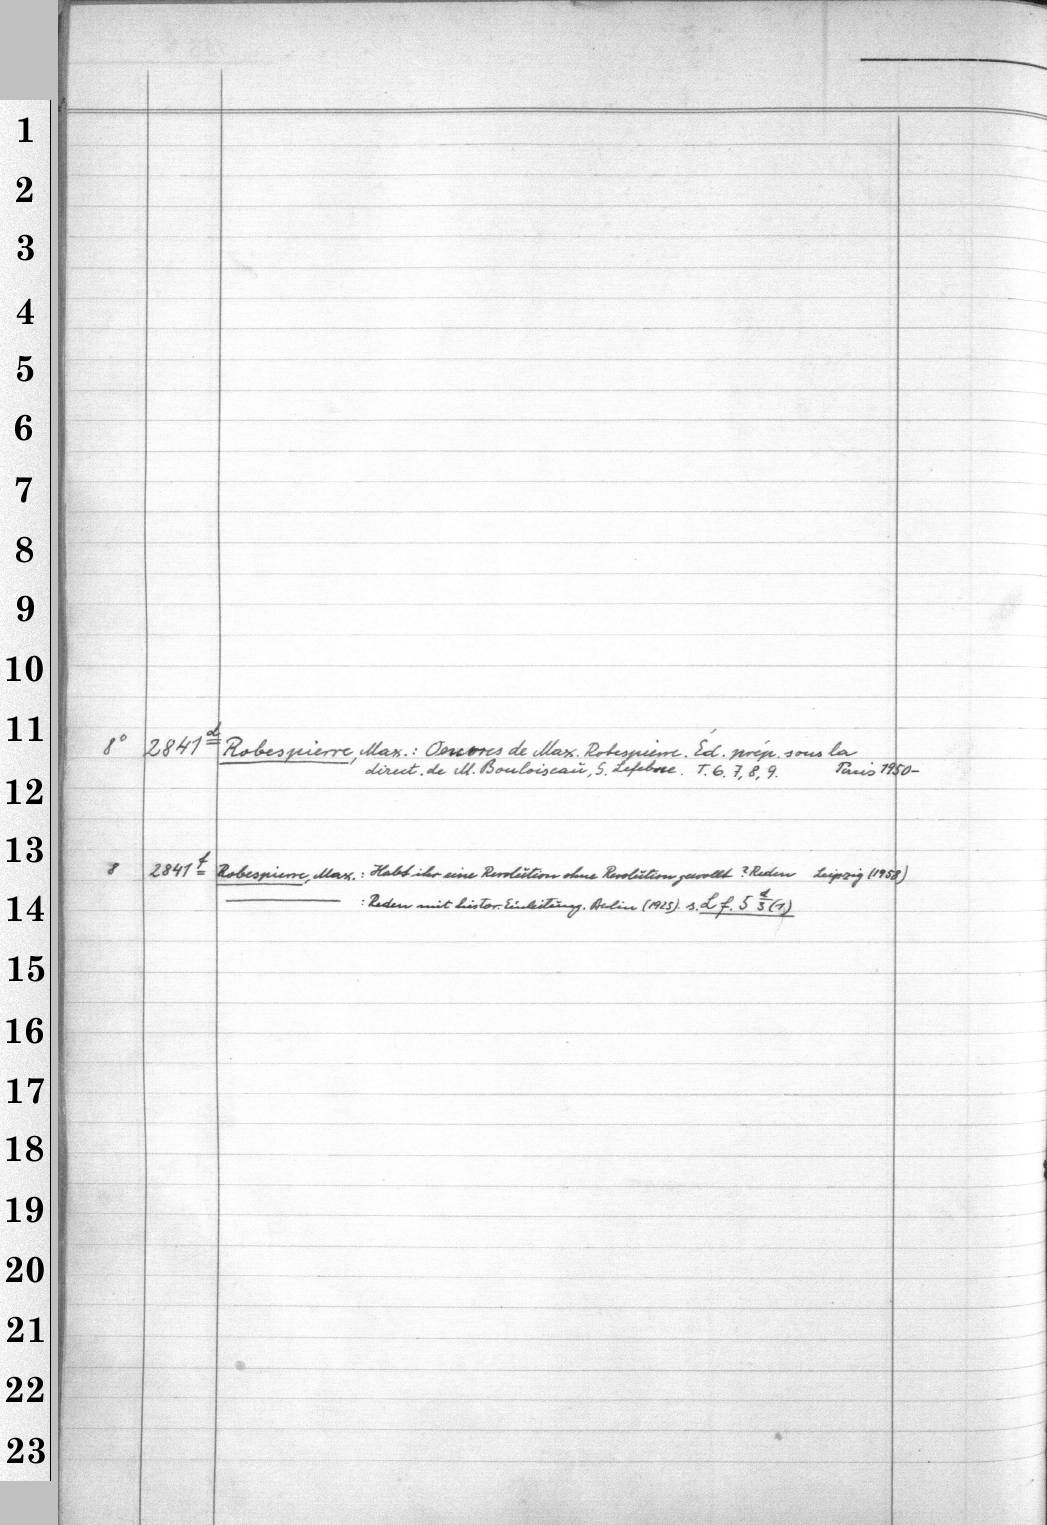 1
2
3
4
5
6
7
8
9
10
11
8° 2841 d Robespierre, Max.: Oeuvres de Max. Robespierre. Éd. prép. sous la
direct. de M. Bouloiseau, G. Lefebvre. T. 6, 7, 8, 9. Paris 1950-
12
13
8 2841 f Robespierre, Max.: Habt ihr eine Revolution ohne Revolution gewollt? Reden Leipzig (1958)
14
: Reden mit histor. Einleitung. Berlin (1925). s. L f. 5 d/3 (1)
15
16
17
18
19
20
21
22
23